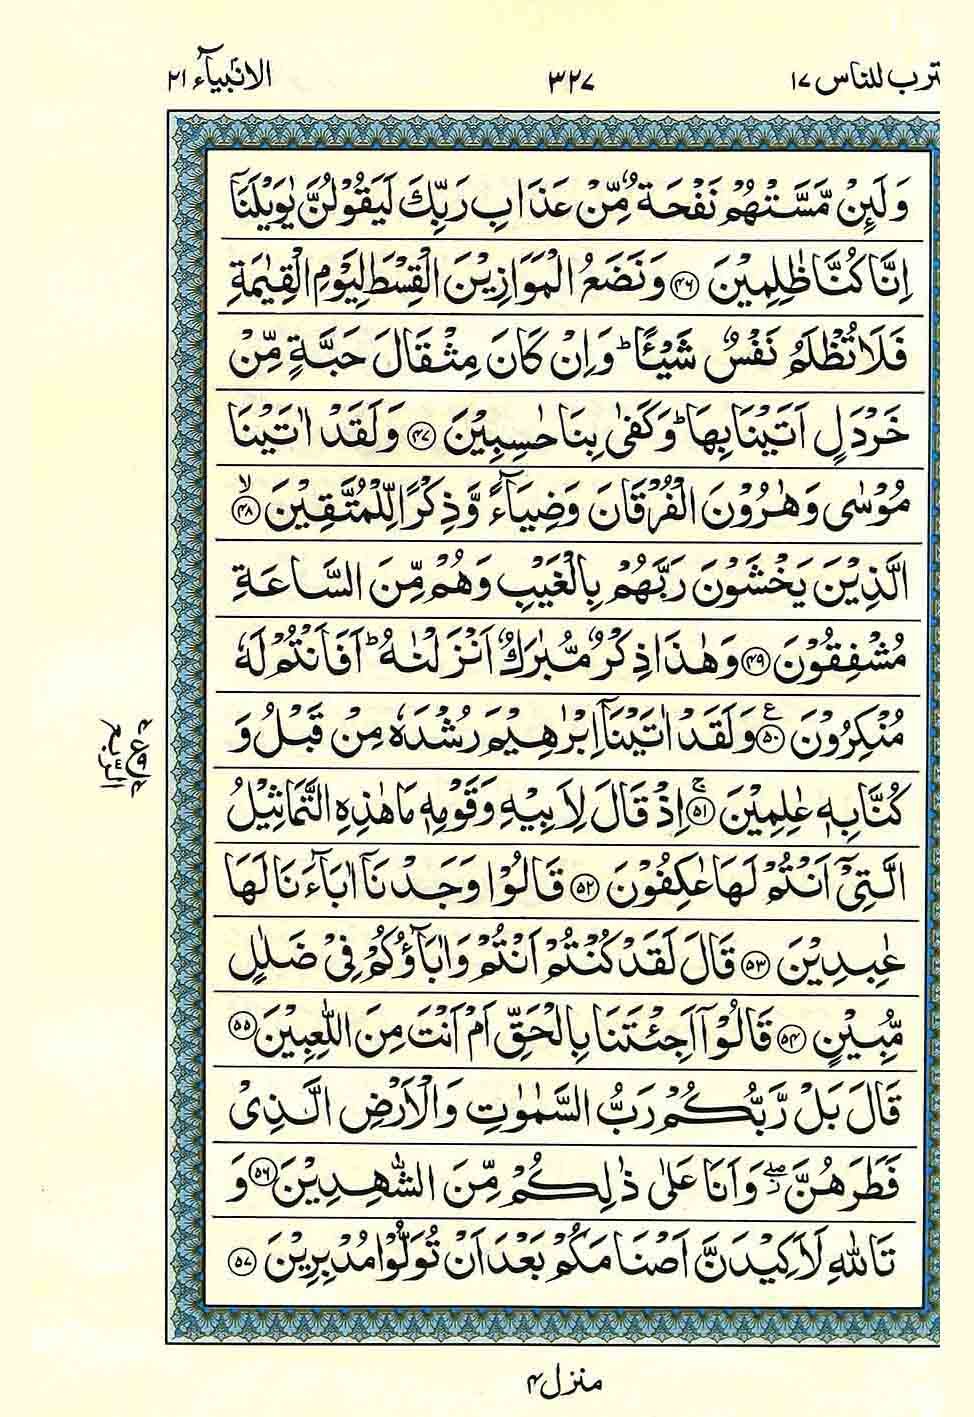 ترب للناس ١٧ ٣٢٧ الانبیآء ٢١
وَلَئِنْ مَّسَّتْهُمْ نَفْحَةٌ مِّنْ عَذَابِ رَبِّكَ لَيَقُوْلُنَّ يٰوَيْلَنَاۤ
اِنَّا كُنَّا ظٰلِمِيْنَ ﴿۴۶﴾ وَنَضَعُ الْمَوَازِيْنَ الْقِسْطَ لِيَوْمِ الْقِيٰمَةِ
فَلَا تُظْلَمُ نَفْسٌ شَيْـًٔا ؕ وَاِنْ كَانَ مِثْقَالَ حَبَّةٍ مِّنْ
خَرْدَلٍ اَتَيْنَا بِهَا ؕ وَكَفٰى بِنَا حٰسِبِيْنَ ﴿۴۷﴾ وَلَقَدْ اٰتَيْنَا
مُوْسٰى وَهٰرُوْنَ الْفُرْقَانَ وَضِيَآءً وَّذِكْرًا لِّلْمُتَّقِيْنَ ﴿۴۸﴾ۙ
الَّذِيْنَ يَخْشَوْنَ رَبَّهُمْ بِالْغَيْبِ وَهُمْ مِّنَ السَّاعَةِ
مُشْفِقُوْنَ ﴿۴۹﴾ وَهٰذَا ذِكْرٌ مُّبٰرَكٌ اَنْزَلْنٰهُ ؕ اَفَاَنْتُمْ لَهٗ
مُنْكِرُوْنَ ﴿۵۰﴾ع وَلَقَدْ اٰتَيْنَاۤ اِبْرٰهِيْمَ رُشْدَهٗ مِنْ قَبْلُ وَ
كُنَّا بِهٖ عٰلِمِيْنَ ﴿۵۱﴾ۚ اِذْ قَالَ لِاَبِيْهِ وَقَوْمِهٖ مَا هٰذِهِ التَّمَاثِيْلُ
الَّتِيْۤ اَنْتُمْ لَهَا عٰكِفُوْنَ ﴿۵۲﴾ قَالُوْا وَجَدْنَاۤ اٰبَآءَنَا لَهَا
عٰبِدِيْنَ ﴿۵۳﴾ قَالَ لَقَدْ كُنْتُمْ اَنْتُمْ وَاٰبَآؤُكُمْ فِيْ ضَلٰلٍ
مُّبِيْنٍ ﴿۵۴﴾ قَالُوْۤا اَجِئْتَنَا بِالْحَقِّ اَمْ اَنْتَ مِنَ اللّٰعِبِيْنَ ﴿۵۵﴾
قَالَ بَلْ رَّبُّكُمْ رَبُّ السَّمٰوٰتِ وَالْاَرْضِ الَّذِيْ
فَطَرَهُنَّ ۖ وَاَنَا عَلٰى ذٰلِكُمْ مِّنَ الشّٰهِدِيْنَ ﴿۵۶﴾ وَ
تَاللّٰهِ لَاَكِيْدَنَّ اَصْنَامَكُمْ بَعْدَ اَنْ تُوَلُّوْا مُدْبِرِيْنَ ﴿۵۷﴾
منزل ۴